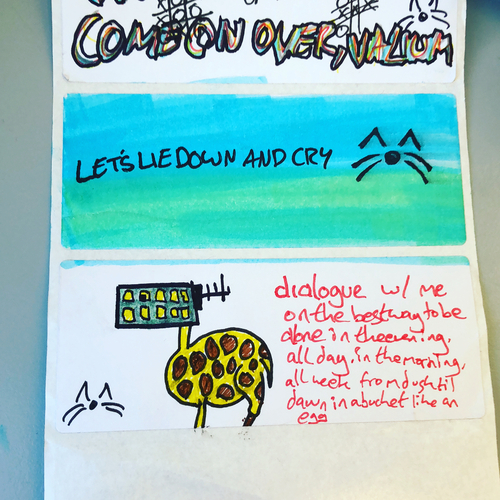 COME ON OVER, VALIUM
LET'S LIE DOWN AND CRY
dialogue w/ me
on the best way to be
alone in the evening,
all day, in the morning,
all week from dusk til
dawn in a bucket like an
egg